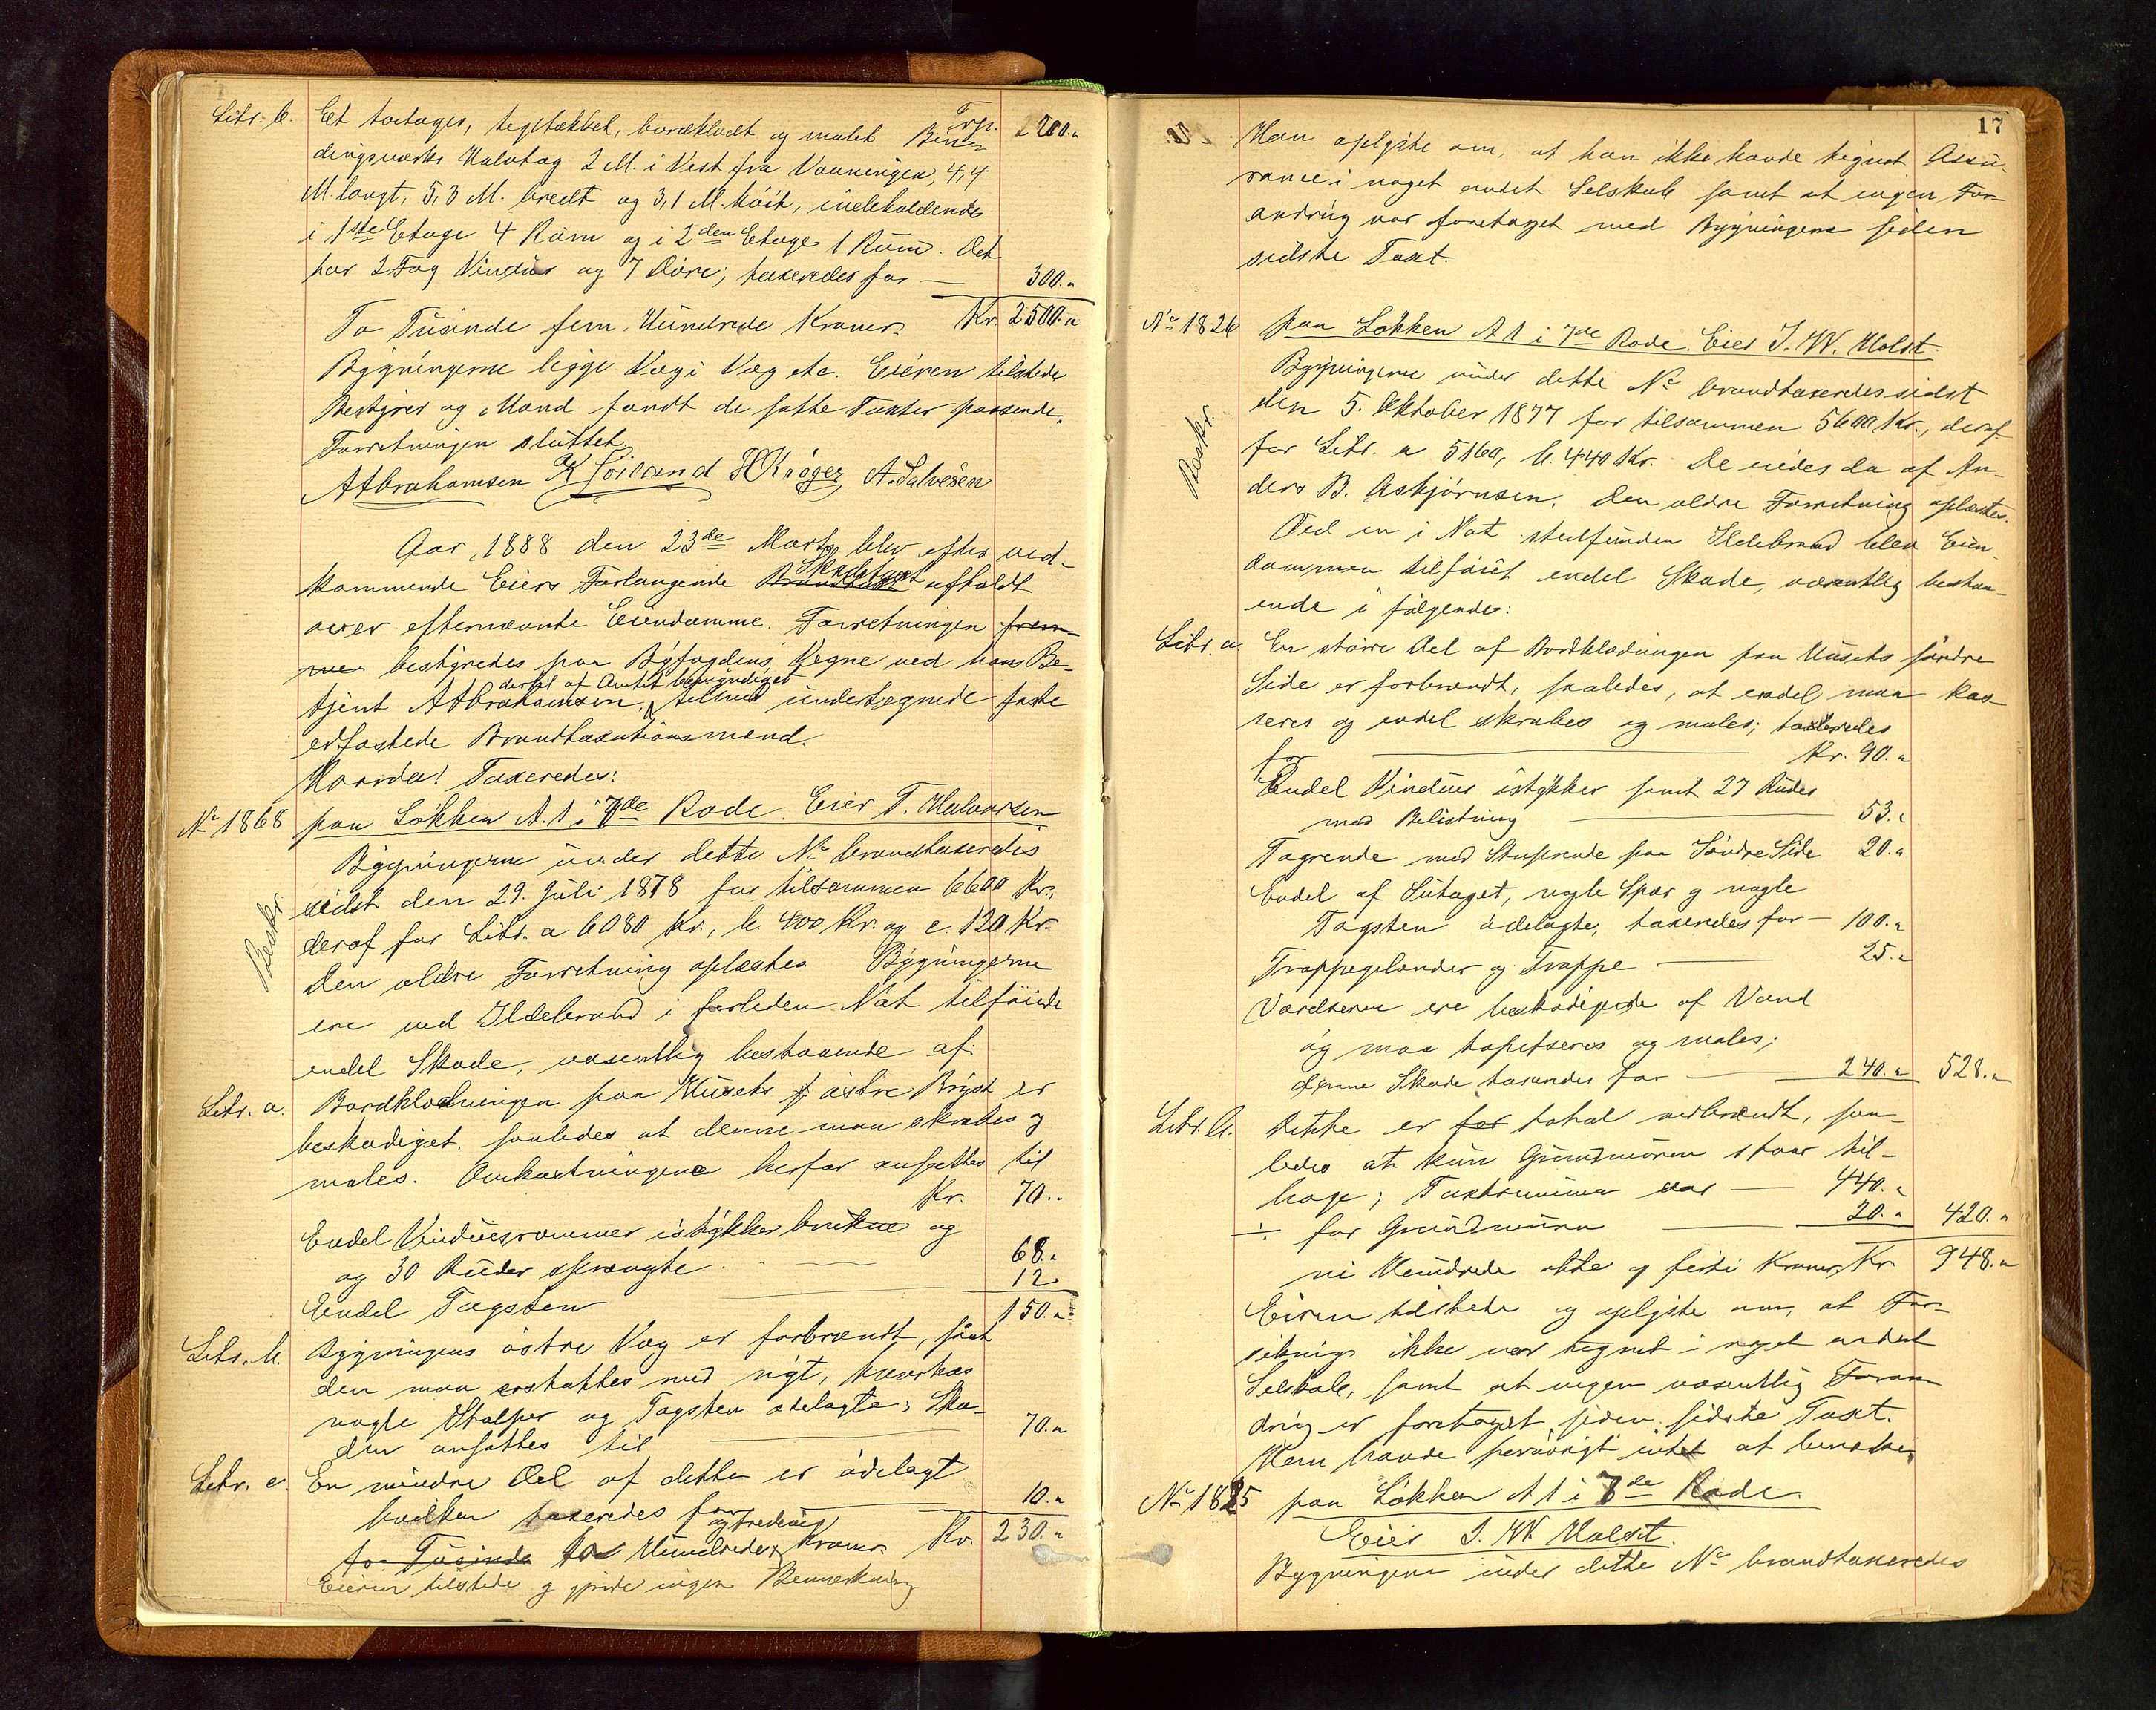 Litr. b. Et toetages, tegltækket, bordklædt og malet Bin- Trp. 2200."
dingsværks Halvtag 2 M. i Vest fra Vaaningen, 4,4
M. langt, 5,3 M. bredt og 3,1 M. høit, indeholdende
i 1ste Etage 4 Rum og i 2den Etage 1 Rum. Det
har 2 Fag Vinduer og 7 Döre; taxeredes for — 300."
To Tusinde fem Hundrede Kroner. Kr. 2500."
Bygningerne ligge Væg i Væg etc. Eieren tilstede
Bestyrer og Mænd fandt de satte Taxter passende.
Forretningen sluttet.
A Abrahamsen K Hoiland H Krøger A. Salvesen
Aar 1888 den 23de Marts blev efter ved-
kommende Eiers Forlangende Brandtaxt Skadetaxt afholdt
over efternævnte Eiendomme. Forretningen frem-
me bestyredes paa Byfogdens Vegne ved hans Be-
dertil af Amtet bemyndiget
tjent A Abrahamsen, tilmed undertegnede faste
edfæstede Brandtaxationsmænd.
Hvorda! Taxeredes:
No 1868 paa Løkken A. 1 i 7de Rode. Eier T. Halvorsen
Beskr.
Bygningerne under dette No brandtaxeredes
sidst den 29. Juli 1878 for tilsammen 6600 Kr.,
deraf for Litr. a 6080 Kr., b. 400 Kr. og c. 120 Kr.
Den ældre Forretning oplæstes Bygningerne
ere ved Ildebrand i forleden Nat tilføiede
endel Skade, væsentlig bestaaende af:
Litr. a. Bordklædningen paa Husets østre Bryst er
beskadiget, saaledes at denne maa skrabes og
males. Omkostningene herfor ansættes til
Kr. 70."
Endel Vinduesrammer istykker brukne og
og 30 Ruder sprængte — 68."
Endel Tagsten 12
150."
Litr. b. Bygningens østre Væg er forbrændt, samt
den maa erstattes med nyt, hvorhos
nogle Stolper og Tagsten ødelagte; Ska-
den ansættes til — 70."
Litr. c. En mindre Del af dette er ødelagt
hvilken taxeredes for — 10."
to Tusinde to Hundrede og tredive Kroner Kr. 230."
Eieren tilstede og gjorde ingen Bemærkning
17
Han oplyste om, at han ikke havde tegnet Assu-
rance i noget andet Selskab samt at ingen For-
andring var foretaget med Bygningene siden
sidste Taxt.
No 1826 paa Løkken A 1 i 7de Rode. Eier J. W. Holst.
Beskr.
Bygningerne under dette No brandtaxeredes sidst
den 5. Oktober 1877 for tilsammen 5600 Kr., deraf
for Litr. a 5160, b. 440 Kr. De eiedes da af An-
ders B. Asbjørnsen. Den ældre Forretning oplæstes.
Ved en i Nat stedfunden Ildebrand blev Eien-
dommen tilføiet endel Skade, væsentlig bestaa-
ende i følgende:
Litr. a. En større Del af Bordklædningen paa Husets søndre
Side er forbrændt, saaledes, at endel maa kas-
seres og endel skrabes og males; taxeredes
for — Kr. 90."
Endel Vinduer istykker samt 27 Ruder
med Belistning — 53."
Tagrende med Stuprende paa Søndre Side 20."
Endel af Sutaget, nogle Spær og nogle
Tagsten ødelagte, taxeredes for — 100."
Trappegelænder og Trappe — 25."
Værelserne ere beskadigede af Vand
og maa tapetseres og males;
denne Skade taxeredes for — 240." 528."
Litr. b. Dette er for total nedbrændt, saa-
ledes at kun Grundmuren staar til-
bage; Taxtsummen var — 440."
÷ for Grundmuren — 20." 420."
ni Hundrede otte og førti Kroner, Kr 948."
Eieren tilstede og oplyste om, at For-
sikring ikke var tegnet i noget andet
Selskab, samt at ingen væsentlig Foran-
dring er foretaget siden sidste Taxt.
Han havde forøvrigt intet at bemærke,
No 1825 paa Løkken A 1 i 7de Rode
Eier J. W. Holst.
Bygningerne under dette No brandtaxeredes